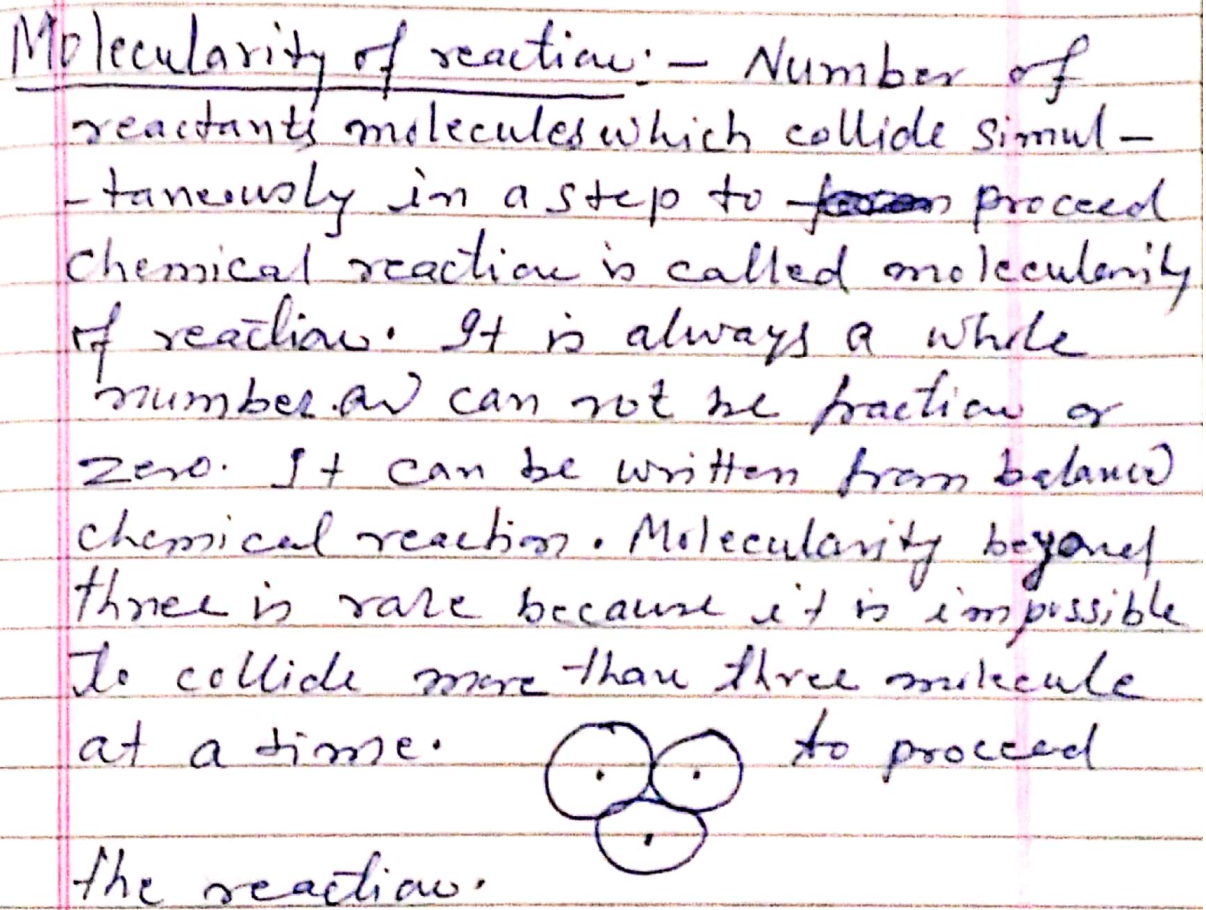 Molecularity of reaction:- Number of
reactants molecules which collide simul-
-taneously in a step to proceed
chemical reaction is called molecularity
of reaction. It is always a whole
number and can not be fraction or
zero. It can be written from balanced
chemical reaction. Molecularity beyond
three is rare because it is impossible
to collide more than three molecule
at a time. to proceed
the reaction.